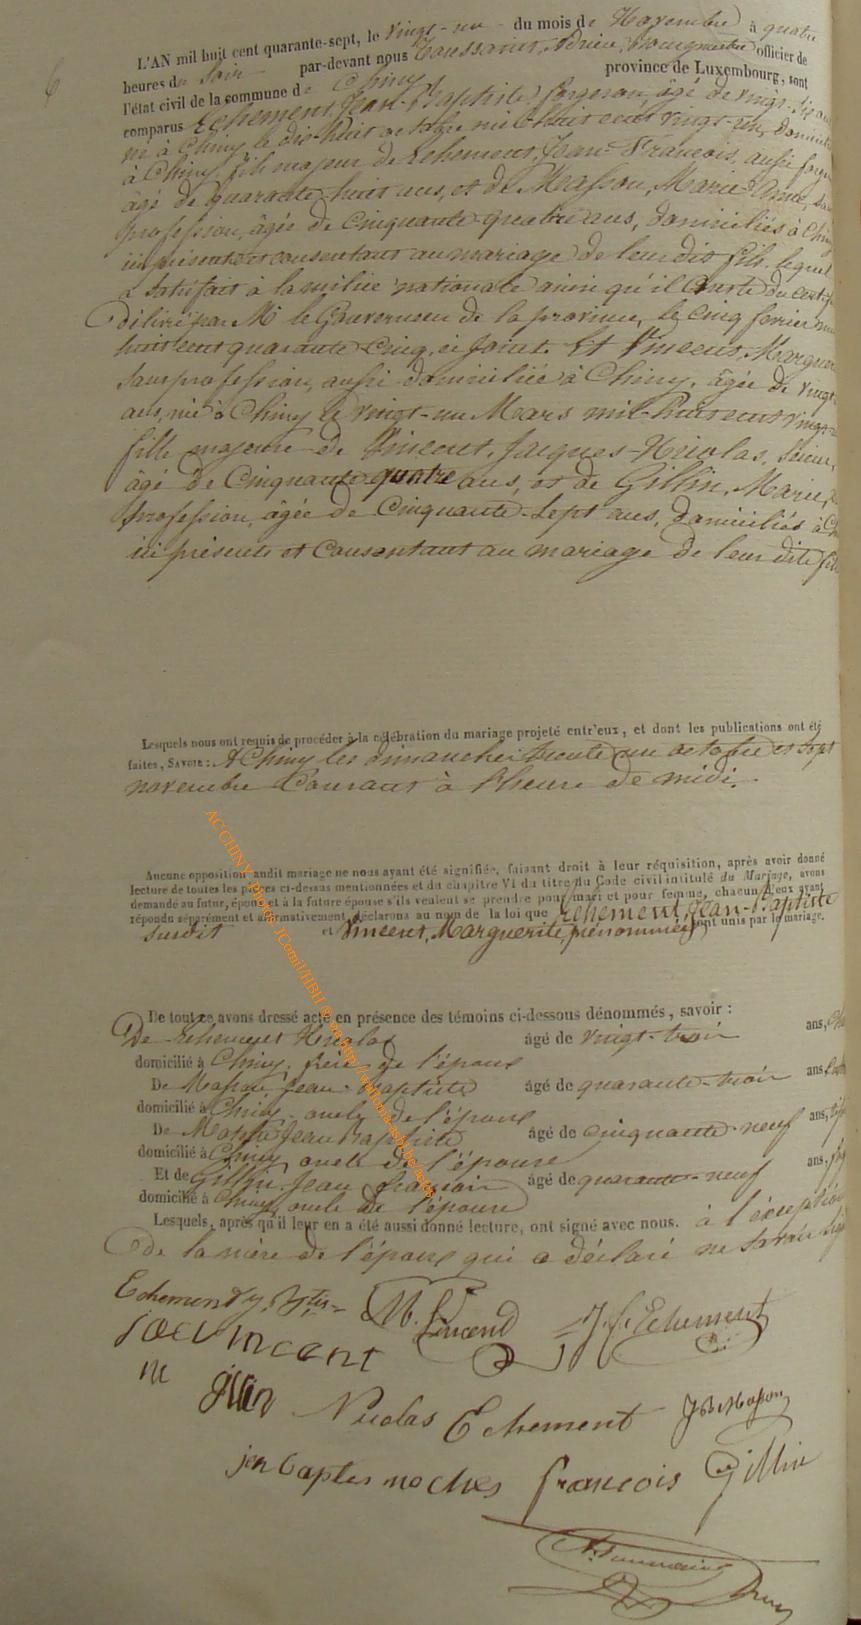 6
L'AN mil huit cent quarante-sept, le vingt-un du mois de Novembre à quatre
heures du Soir par-devant nous Toussaint, Adrien, Bourgmestre officier de
l'état civil de la commune de Chiny province de Luxembourg, sont
comparus Echement, Jean-Baptiste, forgeron, âgé de vingt-six ans
né à Chiny le dix-huit octobre mil huit cent vingt-un, domicilié
à Chiny, fils majeur de Echement, Jean-François, aussi
âgé de quarante-huit ans, et de Masson, Marie
profession, âgée de Cinquante quatre ans, domiciliés à
ici présents et consentant au mariage de leur dit fils, lequel
a satisfait à la milice nationale ainsi qu'il Conste du
délivré par Mr le Gouverneur de la province, le cinq fevrier
huit cent quarante Cinq, ci joint. Et Vincent,
sans profession, aussi domiciliée à Chiny, âgée de vingt
ans, née à Chiny le vingt-un Mars mil-huit cent
fille majeure de Vincent, Jacques-Nicolas,
âgé de Cinquante quatre ans, et de Gillin, Marie,
profession, âgée de Cinquante-Sept ans, domiciliés à
ici présents et Consentant au mariage de leur dite
Lesquels nous ont requis de procéder à la célébration du mariage projeté entr'eux, et dont les publications ont été
faites, SAVOIR : A Chiny les dimanches trente un octobre et sept
novembre Courant à l'heure de midi.
Aucune opposition audit mariage ne nous ayant été signifiée, faisant droit à leur réquisition, après avoir donné
lecture de toutes les pièces ci-dessus mentionnées et du chapitre VI du titre du Code civil intitulé du Mariage, avons
demandé au futur époux et à la future épouse s'ils veulent se prendre pour mari et pour femme, chacun d'eux ayant
répondu séparément et affirmativement, déclarons au nom de la loi que Echement, Jean-Baptiste
susdit et Vincent, Marguerite, prénommée sont unis par le mariage.
De tout ce avons dressé acte en présence des témoins ci-dessous dénommés, savoir :
De Echement Nicolas âgé de vingt-trois ans,
domicilié à Chiny, frère de l'époux
De Masson Jean-Baptiste âgé de quarante-trois ans,
domicilié à Chiny, oncle de l'époux
De Jean Baptiste âgé de cinquante-neuf ans,
domicilié à Chiny, oncle de l'épouse
Et de Gillin Jean François âgé de quarante-neuf ans,
domicilié à Chiny, oncle de l'épouse
Lesquels, après qu'il leur en a été aussi donné lecture, ont signé avec nous. à l'exception
De la mère de l'époux qui a déclaré ne savoir
Echement M. Vincent J. f. Echement
Vincent
m gillin Nicolas Echement JB Masson
françois Gillin
AC CHINY